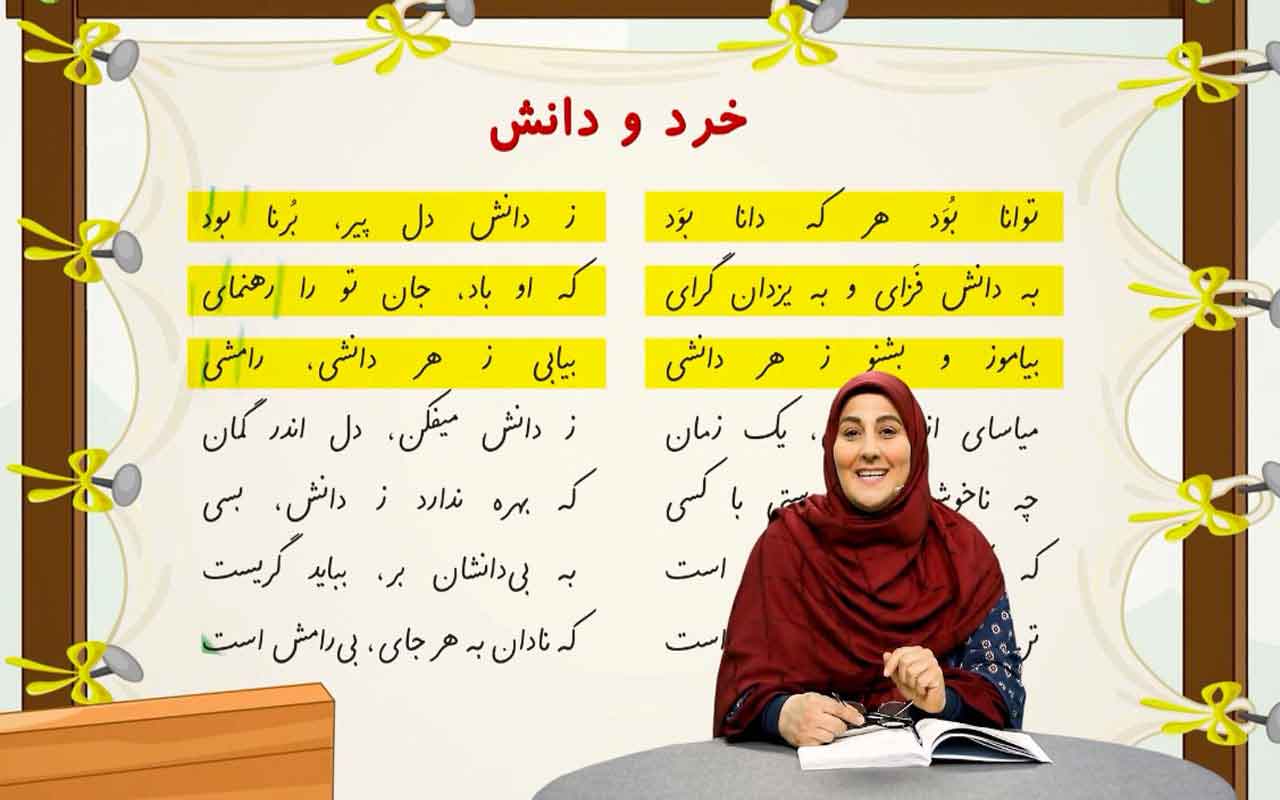 خرد و دانش
توانا بُوَد هر که دانا بوَد ز دانش دل پیر، بُرنا بود
به دانش فَزای و به یزدان گرای که او باد، جان تو را رهنمای
بیاموز و بشنو ز هر دانشی بیابی ز هر دانشی، رامشی
میاسای از ، یک زمان ز دانش میفکن، دل اندر گمان
چه با کسی که بهره ندارد ز دانش، بسی
که است به بی‌دانشان بر، بباید گریست
است که نادان به هر جای، بی‌رامش است